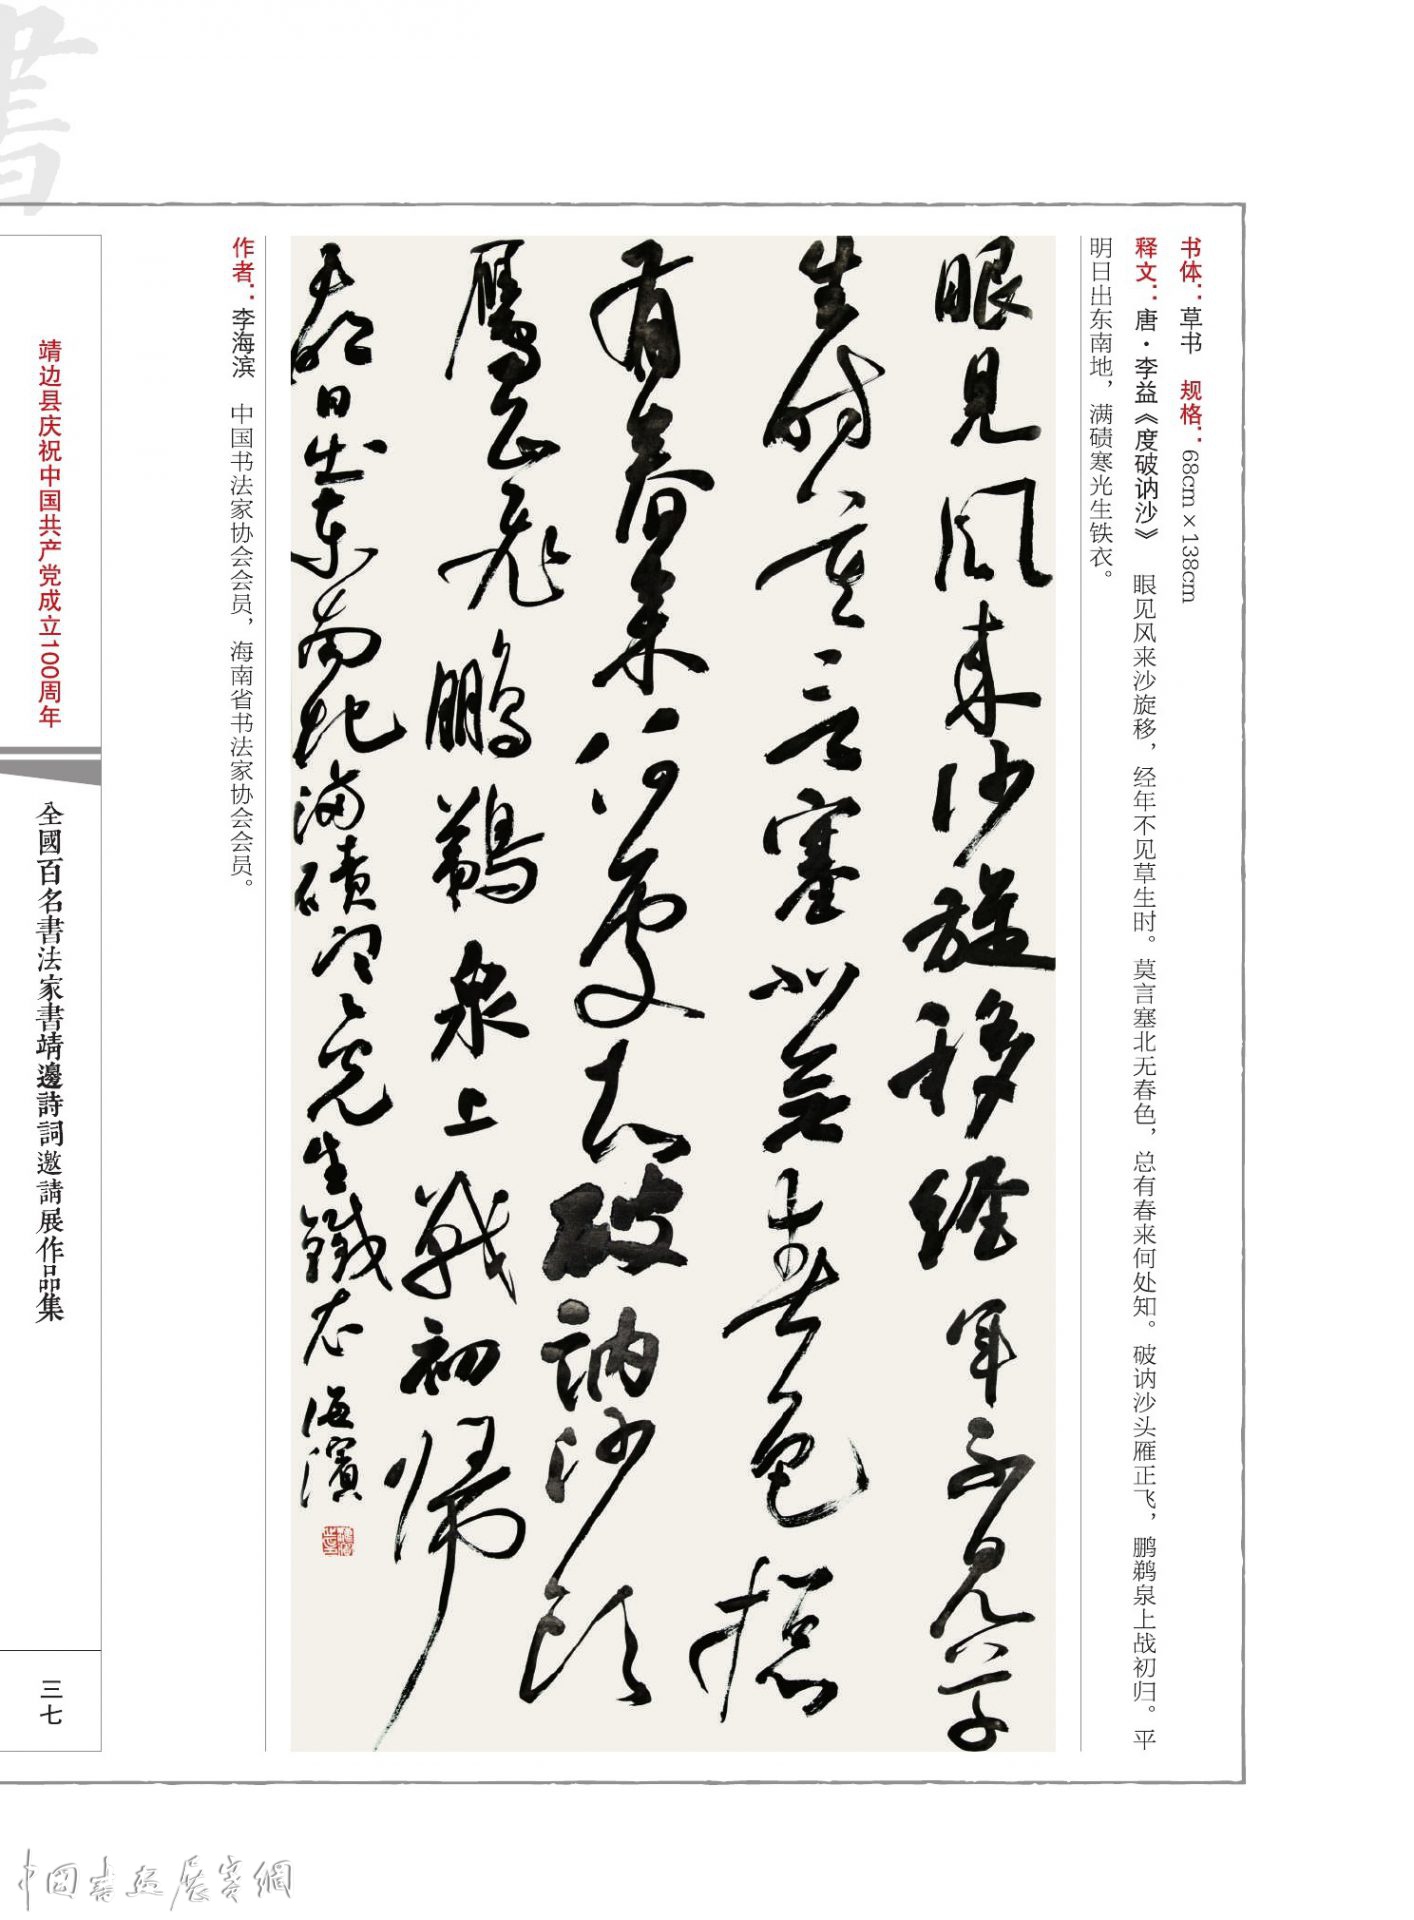 書
书体：草书　规格：68cm×138cm
释文：唐·李益《度破讷沙》　眼见风来沙旋移，经年不见草生时。莫言塞北无春色，总有春来何处知。破讷沙头雁正飞，鹏鹈泉上战初归。平
明日出东南地，满碛寒光生铁衣。
眼見風來沙旋移經年不見草
生時莫言塞北無春色總
有春來何處知破訥沙頭
鴈正飛鵬鵜泉上戰初歸
平明日出東南地滿磧寒光生鐵衣 海濱
作者：李海滨　中国书法家协会会员，海南省书法家协会会员。
靖边县庆祝中国共产党成立100周年
全國百名書法家書靖邊詩詞邀請展作品集
三七
中國書画展賽網